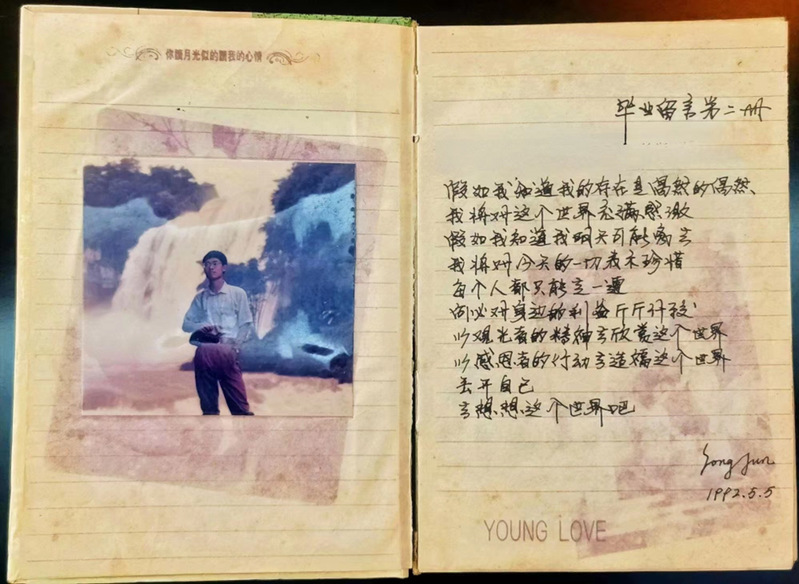 你讓月光似的讀我的心情
毕业留言第二册
假如我知道我的存在是偶然的偶然、
我将对这个世界充满感激
假如我知道我明天可能离去
我将对今天的一切表示珍惜
每个人都只能走一遭
何必对身边的利益斤斤计较
以观光者的精神去欣赏这个世界
以感恩者的行动去造福这个世界
丢开自己
去想想这个世界吧
Yong Jun
1992.5.5
YOUNG LOVE